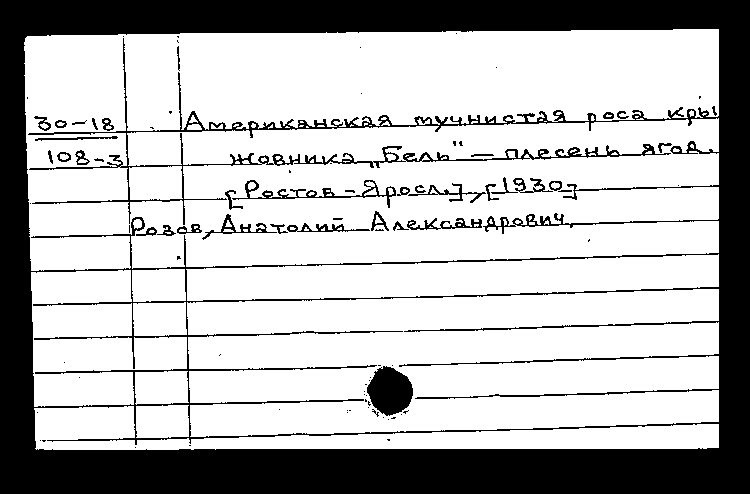 30-18 Американская мучнистая роса кры
108-3 жовника „Бель" — плесень ягод.
[Ростов-Яросл.], [1930]
Розов, Анатолий Александрович.